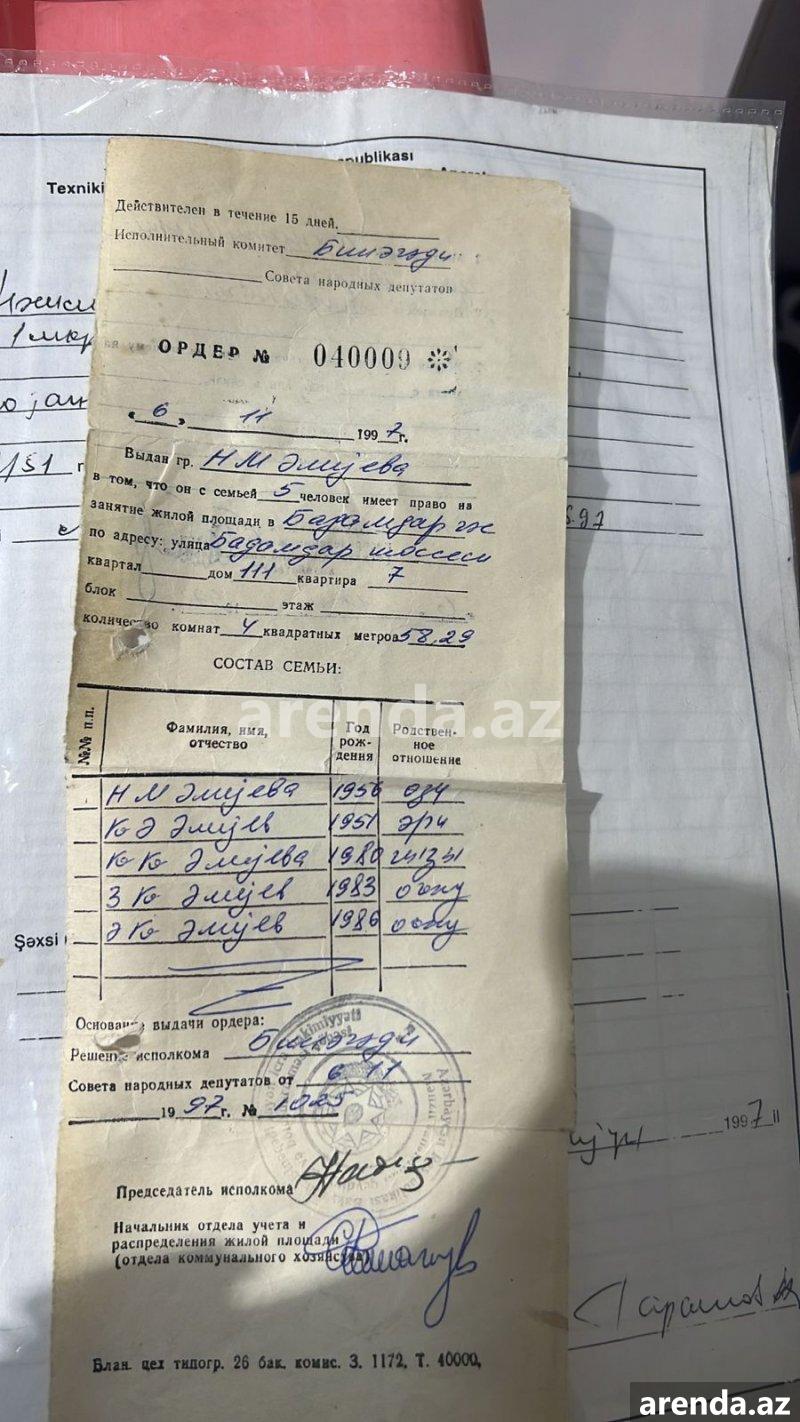 publikası
Texniki
Действителен в течение 15 дней.
Исполнительный комитет Бинәгәди
Совета народных депутатов
1 мкр
ОРДЕР № 040009
« 6 » 11 1997 г.
Выдан гр. Н М Әлијева
в том, что он с семьей 5 человек имеет право на
занятие жилой площади в Бадамдар
по адресу: улица Бадамдар шоссеси
квартал дом 111 квартира 7
блок этаж
количество комнат 4 квадратных метров 58,29
СОСТАВ СЕМЬИ:
№№ п.п. Фамилия, имя, отчество Год рождения Родственное отношение
Н М Әлијева 1956 өзү
К Ә Әлијев 1951 әри
К К Әлијева 1980 гызы
З К Әлијев 1983 оғлу
Ә К Әлијев 1986 оғлу
Şəxsi
Основание выдачи ордера:
Решение исполкома Бинәгәди
Совета народных депутатов от 6 11
1997 г. № 1025
1997 il
Председатель исполкома
Начальник отдела учета и
распределения жилой площади
(отдела коммунального хозяйства)
Блан. цех типогр. 26 бак. комис. З. 1172, Т. 40000,
arenda.az
arenda.az